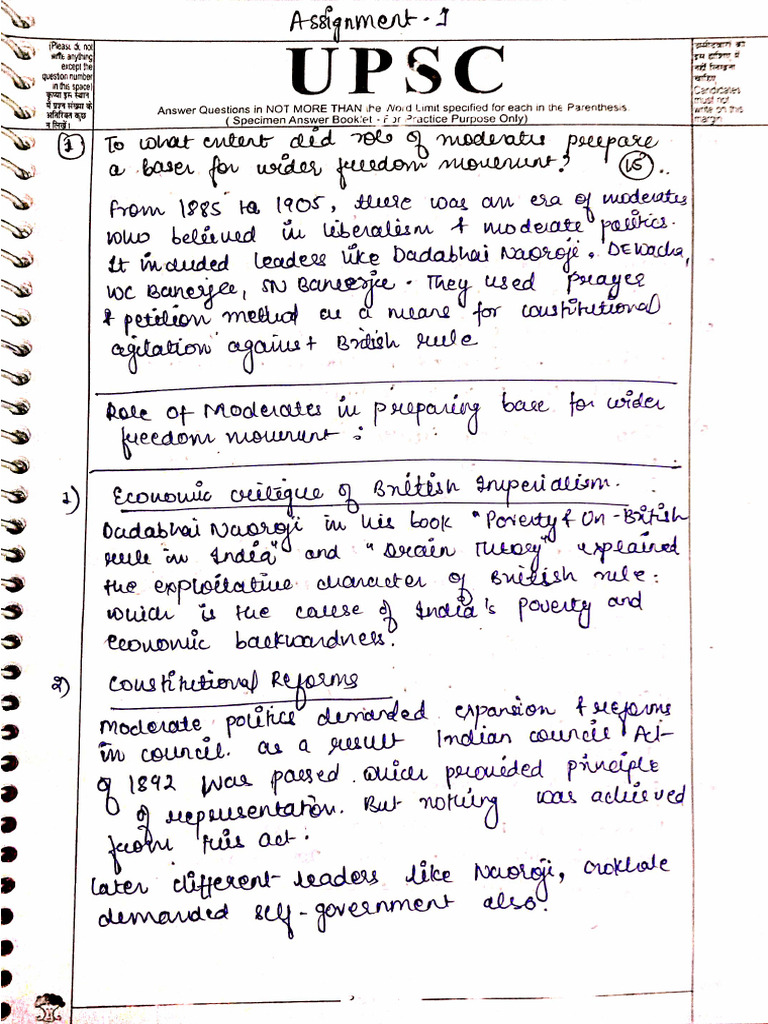 Assignment - 1
(Please do not
write anything
except the
question number
in this space)
कृपया इस स्थान
में प्रश्न संख्या के
अतिरिक्त कुछ
न लिखें।
UPSC
Answer Questions in NOT MORE THAN the Word Limit specified for each in the Parenthesis.
( Specimen Answer Booklet - For Practice Purpose Only)
उम्मीदवारों को
इस हाशिए में
नहीं लिखना
चाहिए
Candidates
must not
write on this
margin
1 To what extent did role of moderates prepare
a base for wider freedom movement? 15
From 1885 to 1905, there was an era of moderates
who believed in liberalism & moderate politics.
It included leaders like Dadabhai Naoroji, DEWacha,
WC Banerjee, SN Banerjee. They used prayer
& petition method as a means for constitutional
agitation against British rule
Role of Moderates in preparing base for wider
freedom movement :
1) Economic critique of British Imperialism.
Dadabhai Naoroji in his book "Poverty & Un-British
rule in India" and "Drain Theory" explained
the exploitative character of British rule:
which is the cause of India's poverty and
economic backwardness.
2) Constitutional Reforms
Moderate politics demanded expansion & reforms
in council. as a result Indian council Act
of 1892 was passed which provided principle
of representation. But nothing was achieved
from this act.
later different leaders like Naoroji, Gokhale
demanded self-government also.